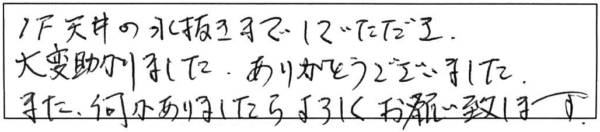 1F天井の水抜きまでしていただき.
大変助かりました. ありがとうございました.
また、何かありましたらよろしくお願い致します.